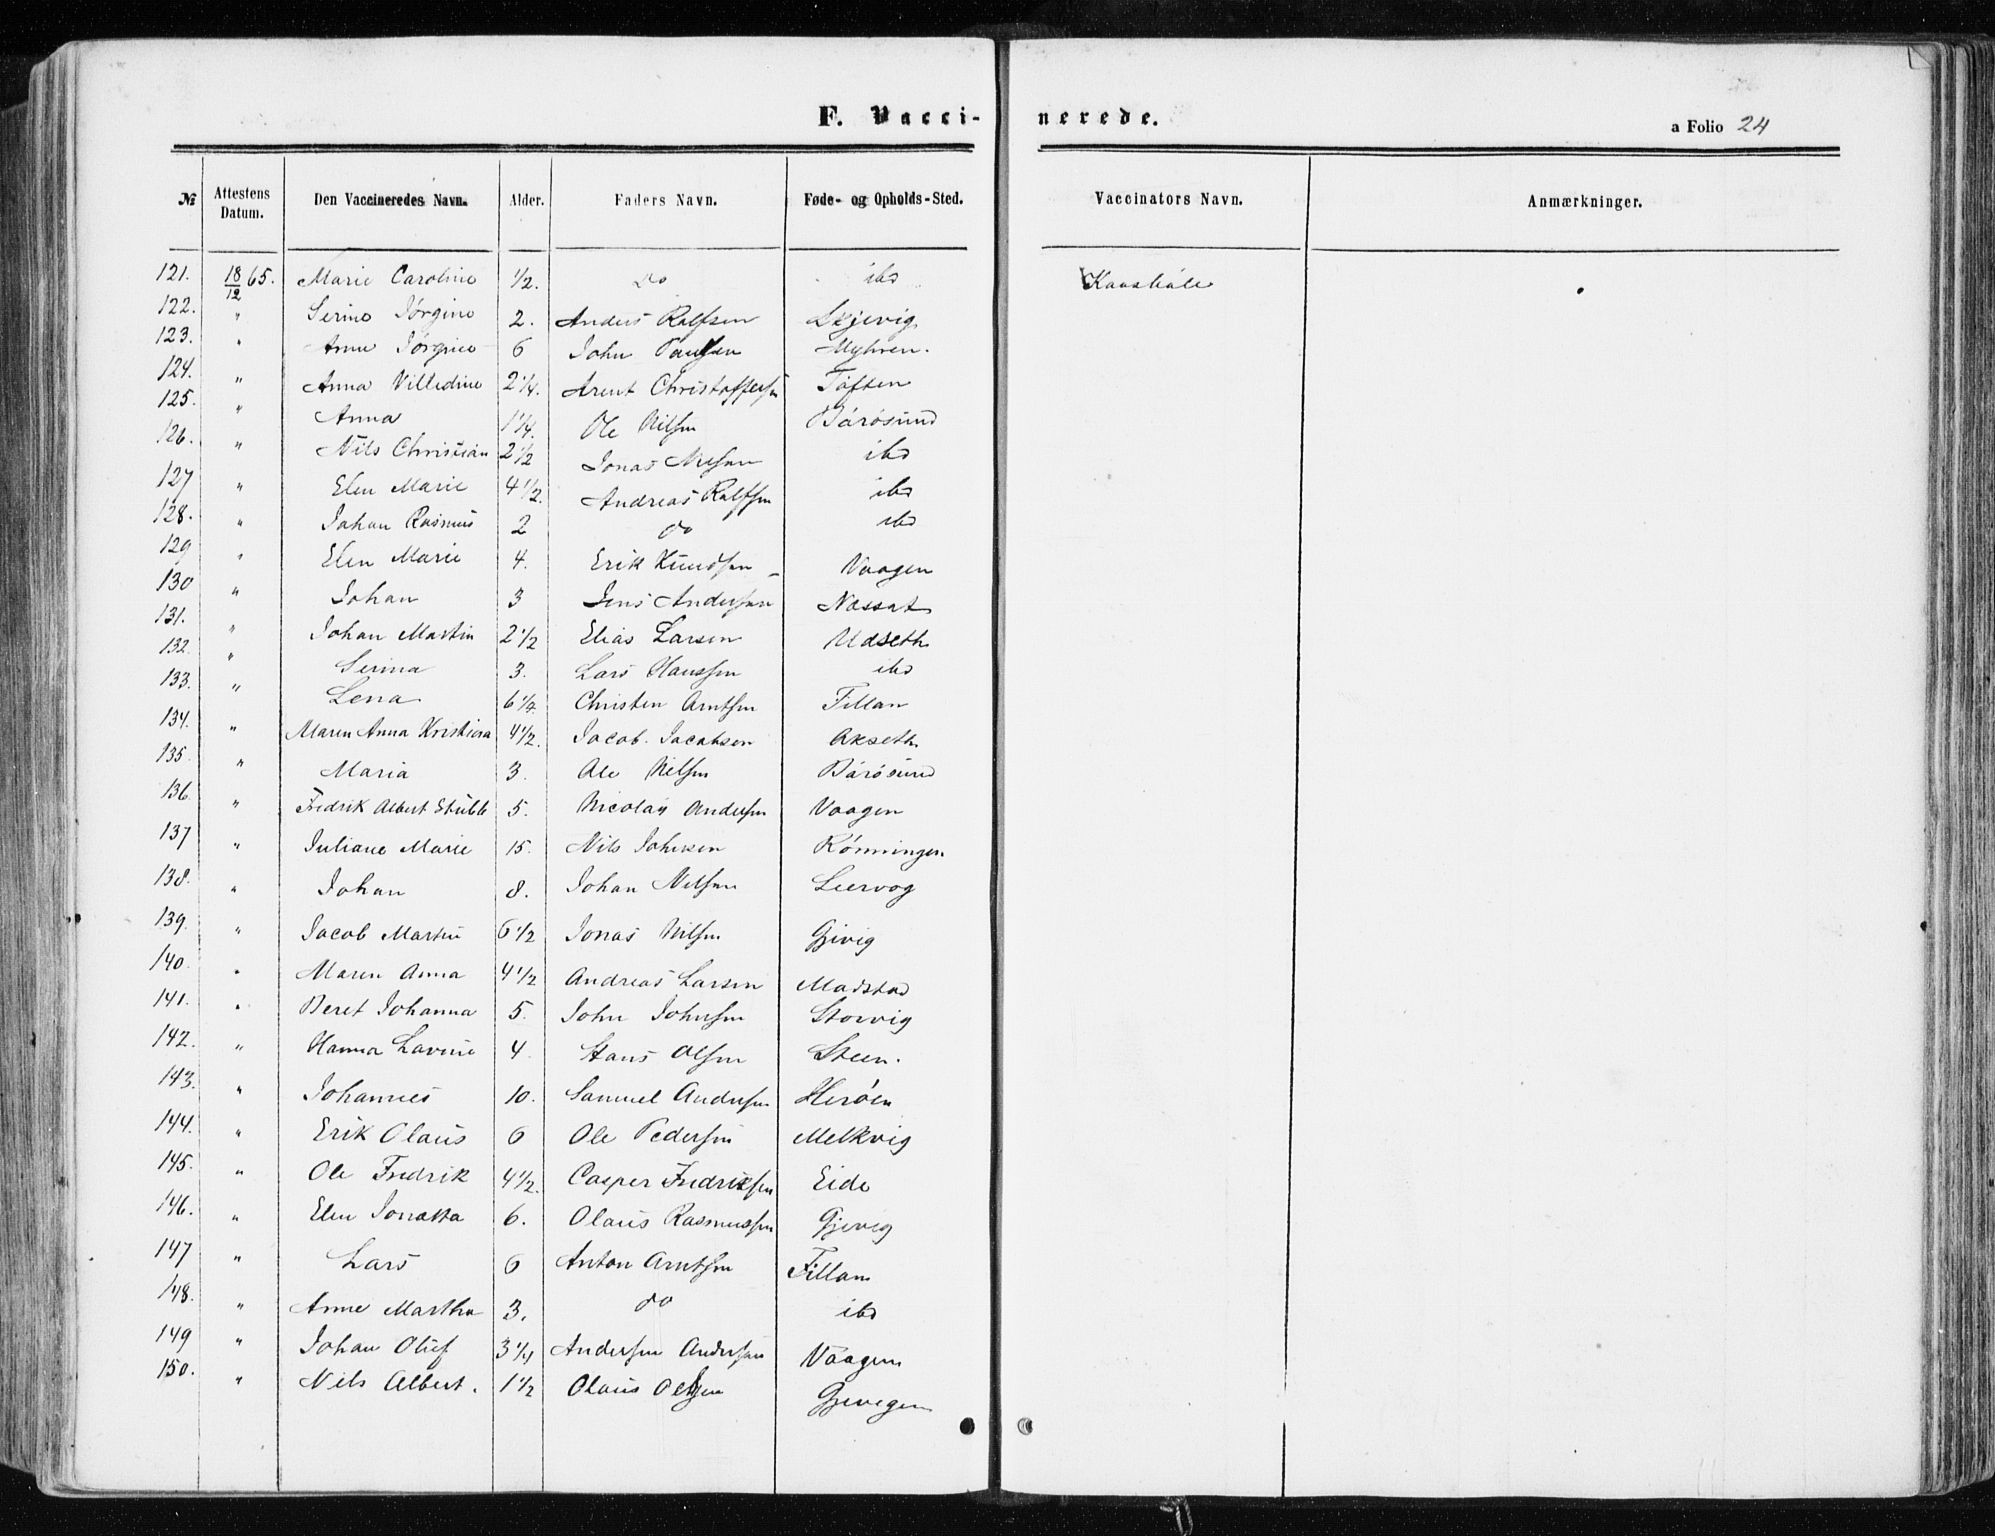 F. Vaccinerede.
a Folio 24
№ Attestens Datum. Den Vaccineredes Navn. Alder. Faders Navn. Føde- og Opholds-Sted. Vaccinators Navn. Anmærkninger.
121. 18/12 65. Marie Caroline 1/2. do ibd
122. " Serine Jørgine 2. Anders Rolfsen
123. " Anne Jørgine 6 John Paulsen Myhren.
124. " Anna Villedine 2 1/4. Arent Christoffersen Töften
125. " Anna 1 1/4. Ole Nilsen Börösund
126. " Nils Christian 2 1/2 Jonas Nilsen ibd
127 " Elen Marie 4 1/2. Andreas Rolfsen ibd
128. " Johan Rasmus 2 do ibd
129 " Elen Marie 4. Erik Knudsen Vaagen
130 " Johan 3 Jens Andersen
131. " Johan Martin 2 1/2 Elias Larsen Udseth
132. " Serina 3. Lars Hanssen ibd
133. " Lena 6 1/4. Christen Arntsen Fillan
134. " Maren Anna Kristiena 4 1/2. Jacob Jacobsen Akseth
135. " Maria 3. Ole Nilsen Börösund
136. " Fredrik Albert 5. Nicolay Andersen Vaagen
137 " Juliane Marie 15. Nils Johnsen Rönningen
138. " Johan 8. Johan Nilsen Leervog
139. " Jacob Martin 6 1/2 Jonas Nilsen Gjevig
140. " Maren Anna 4 1/2 Andreas Larsen Madstad
141. " Beret Johanna 5. John Johnsen Storvig
142. " Hanna Lavine 4. Hans Olsen Steen.
143. " Johannes 10. Samuel Andersen Heröen
144. " Erik Olaus 6 Ole Pedersen Melkvig
145. " Ole Fredrik 4 1/2. Casper Fredriksen Eide
146. " Elen Jonatta 6. Olaus Rasmussen Gjevig
147 " Lars 6 Anton Arntsen Fillan
148. " Anne Martha 3. do ibd
149 " Johan Oluf 3 1/4 Andersen Andersen Vaagen
150. " Nils Albert. 1 1/2 Olaus Olsen Gjevigen